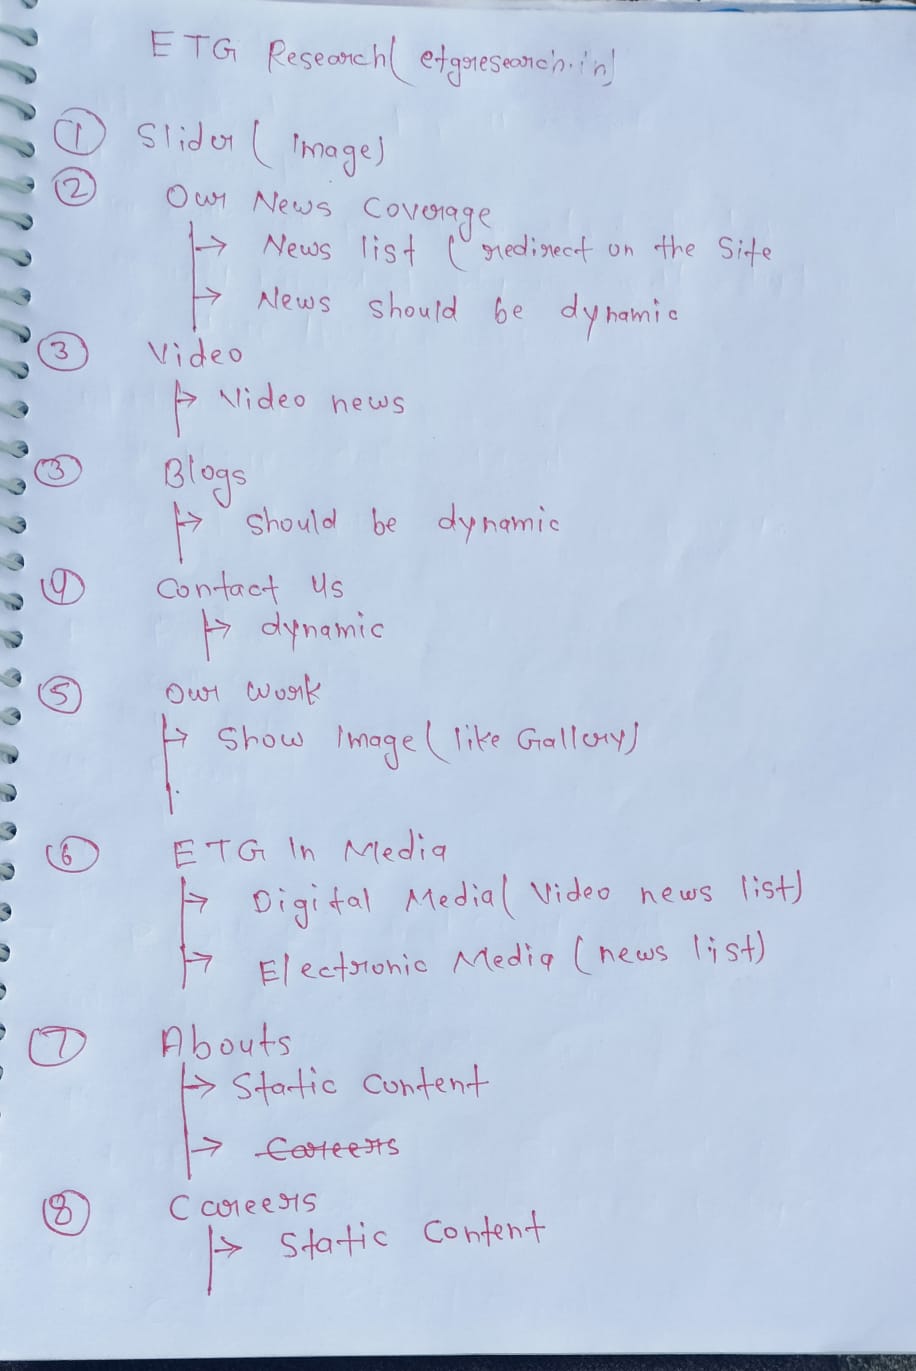 ETG Research( etgresearch.in)
① Slider ( Image)
② Our News Coverage
→ News list ( redirect on the Site
→ News should be dynamic
③ Video
→ Video news
③ Blogs
→ should be dynamic
④ Contact Us
→ dynamic
⑤ Our work
→ Show Image ( like Gallery)
⑥ ETG In Media
→ Digital Media( Video news list)
→ Electronic Media ( news list)
⑦ Abouts
→ Static content
→ Careers
⑧ Careers
→ Static Content